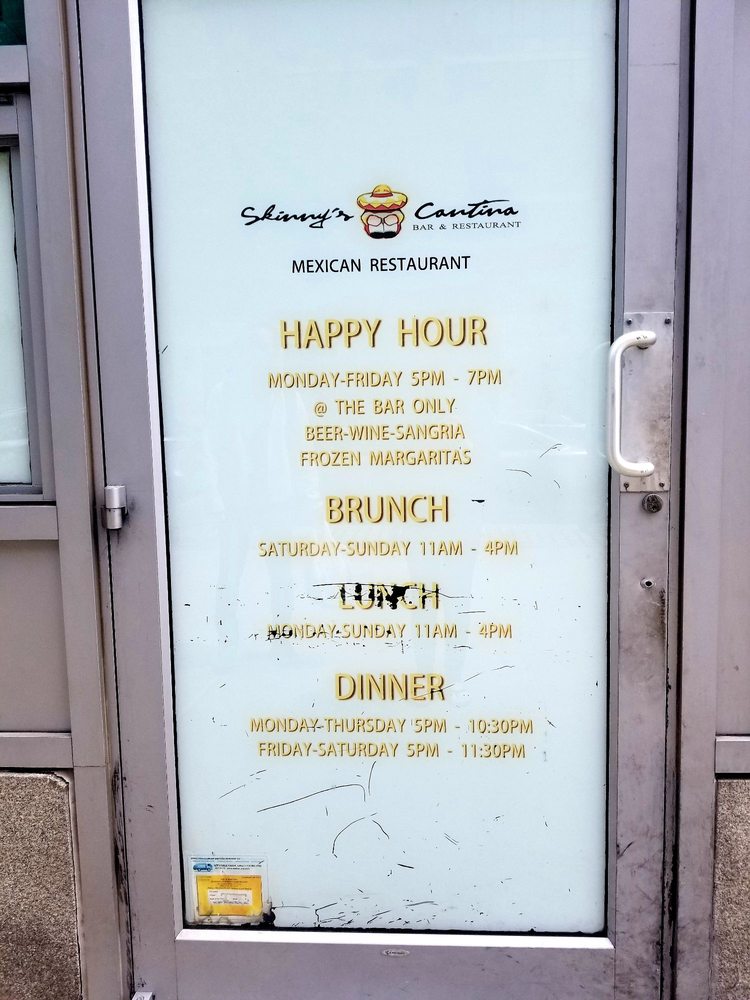 Skinny's Cantina
BAR & RESTAURANT
MEXICAN RESTAURANT
HAPPY HOUR
MONDAY-FRIDAY 5PM - 7PM
@ THE BAR ONLY
BEER-WINE-SANGRIA
FROZEN MARGARITAS
BRUNCH
SATURDAY-SUNDAY 11AM - 4PM
LUNCH
MONDAY-SUNDAY 11AM - 4PM
DINNER
MONDAY-THURSDAY 5PM - 10:30PM
FRIDAY-SATURDAY 5PM - 11:30PM